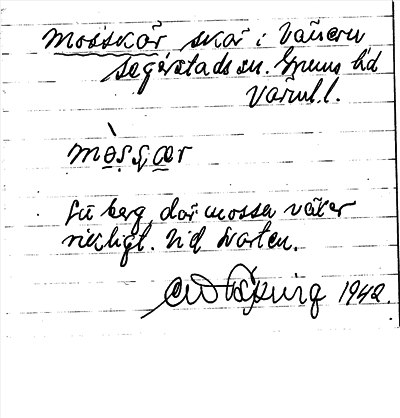 Mosskär skär i Vänern
Segerstads sn. Grums hd
Värml.
mòs̩ʂær
Ett berg där mossa växer
rikligt. Vid Svarten.
1942.